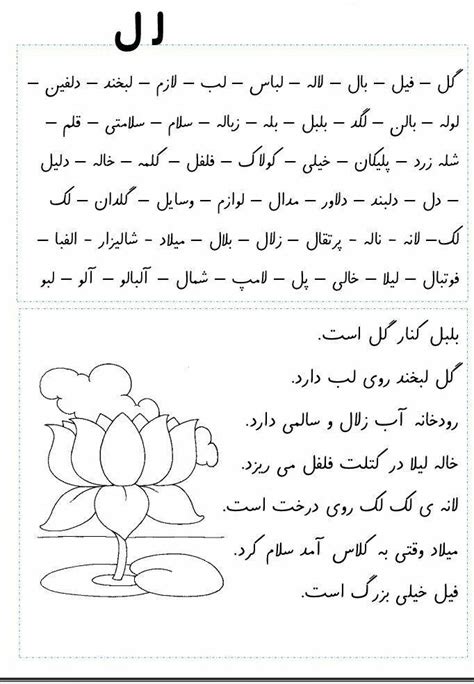 لـ ل
گل – فیل – بال – لاله – لباس – لب – لازم – لبخند – دلفین –
لوله – بالن – لگد – بلبل – بله – زباله – سلام – سلامتی – قلم –
شله زرد – پلیکان – خیلی – کولاک – فلفل – کلمه – خاله – دلیل
– دل – دلبند – دلاور – مدال – لوازم – وسایل – گلدان – لک
لک– لانه – ناله – پرتقال – زلال – بلال – میلاد – شالیزار – الفبا –
فوتبال – لیلا – خالی – پل – لامپ – شمال – آلبالو – آلو – لبو
بلبل کنار گل است.
گل لبخند روی لب دارد.
رودخانه آب زلال و سالمی دارد.
خاله لیلا در کتلت فلفل می ریزد.
لانه ی لک لک روی درخت است.
میلاد وقتی به کلاس آمد سلام کرد.
فیل خیلی بزرگ است.